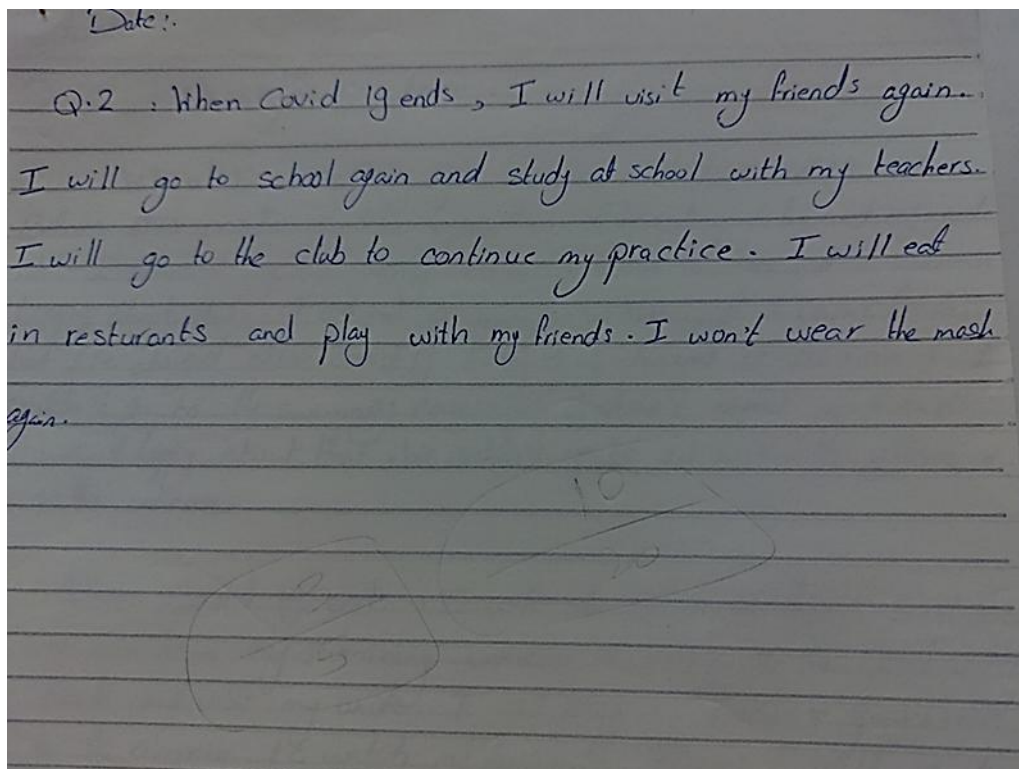 Date:.
Q.2 : When Covid 19 ends, I will visit my friends again.
I will go to school again and study at school with my teachers.
I will go to the club to continue my practice. I will eat
in resturants and play with my friends. I won't wear the mask
again.
10
20